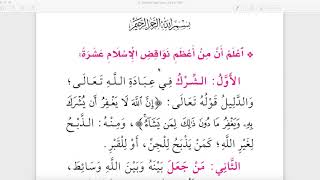 بِسْمِ اللَّهِ الرَّحْمَٰنِ الرَّحِيمِ
اعْلَمْ أَنَّ مِنْ أَعْظَمِ نَوَاقِضِ الْإِسْلَامِ عَشَرَةً:
الْأَوَّلُ: الشِّرْكُ فِي عِبَادَةِ اللَّهِ تَعَالَى،
وَالدَّلِيلُ قَوْلُهُ تَعَالَى: ﴿إِنَّ اللَّهَ لَا يَغْفِرُ أَن يُشْرَكَ
بِهِ وَيَغْفِرُ مَا دُونَ ذَٰلِكَ لِمَن يَشَآءُ﴾، وَمِنْهُ: الذَّبْحُ
لِغَيْرِ اللَّهِ؛ كَمَنْ يَذْبَحُ لِلْجِنِّ، أَوْ لِلْقَبْرِ.
الثَّانِي: مَنْ جَعَلَ بَيْنَهُ وَبَيْنَ اللَّهِ وَسَائِطَ،